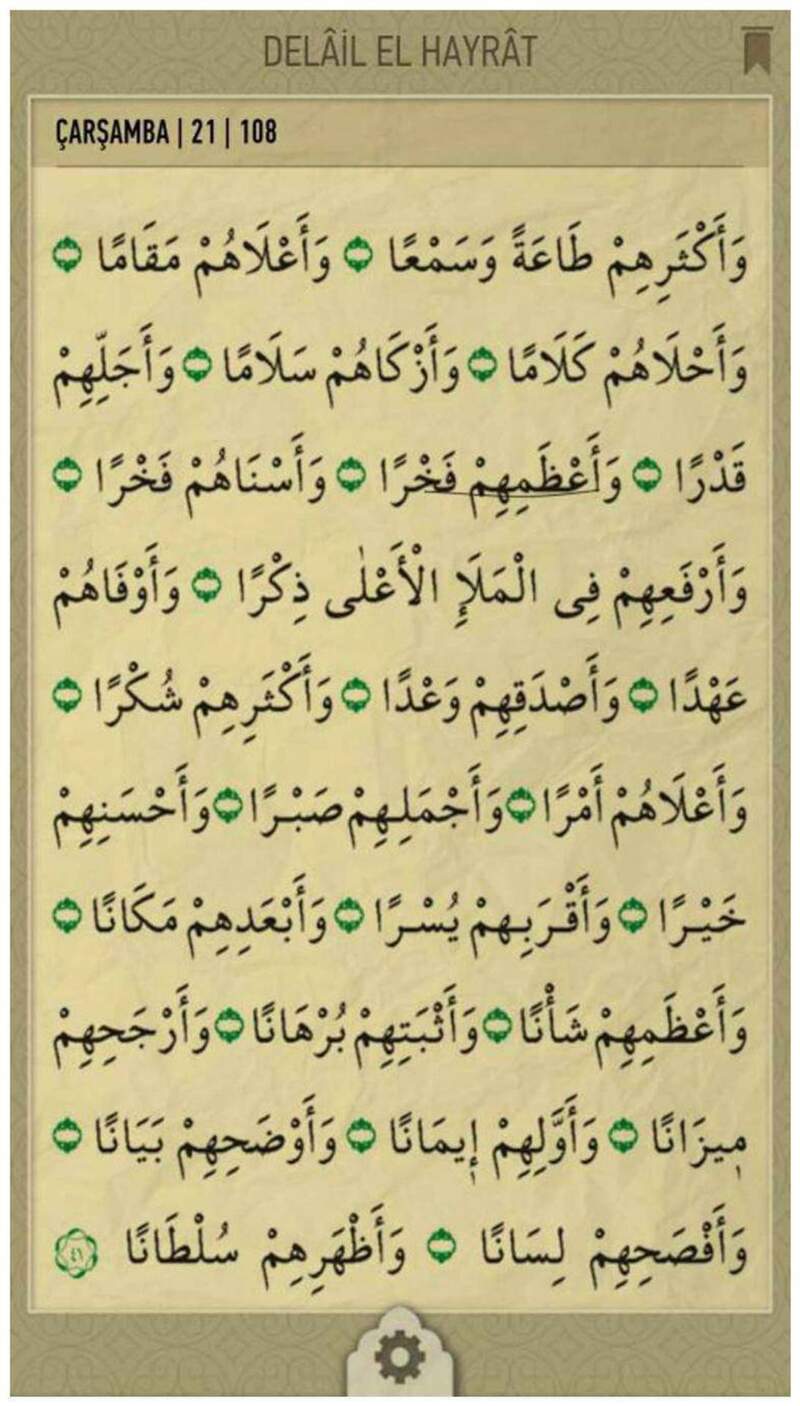 DELÂİL EL HAYRÂT
ÇARŞAMBA | 21 | 108
وَأَكْثَرِهِمْ طَاعَةً وَسَمْعًا ۝ وَأَعْلَاهُمْ مَقَامًا ۝
وَأَحْلَاهُمْ كَلَامًا ۝ وَأَزْكَاهُمْ سَلَامًا ۝ وَأَجَلِّهِمْ
قَدْرًا ۝ وَأَعْظَمِهِمْ فَخْرًا ۝ وَأَسْنَاهُمْ فَخْرًا ۝
وَأَرْفَعِهِمْ فِى الْمَلَإِ الْأَعْلٰى ذِكْرًا ۝ وَأَوْفَاهُمْ
عَهْدًا ۝ وَأَصْدَقِهِمْ وَعْدًا ۝ وَأَكْثَرِهِمْ شُكْرًا ۝
وَأَعْلَاهُمْ أَمْرًا ۝ وَأَجْمَلِهِمْ صَبْرًا ۝ وَأَحْسَنِهِمْ
خَيْرًا ۝ وَأَقْرَبِهِمْ يُسْرًا ۝ وَأَبْعَدِهِمْ مَكَانًا ۝
وَأَعْظَمِهِمْ شَأْنًا ۝ وَأَثْبَتِهِمْ بُرْهَانًا ۝ وَأَرْجَحِهِمْ
مِيزَانًا ۝ وَأَوَّلِهِمْ إِيمَانًا ۝ وَأَوْضَحِهِمْ بَيَانًا ۝
وَأَفْصَحِهِمْ لِسَانًا ۝ وَأَظْهَرِهِمْ سُلْطَانًا